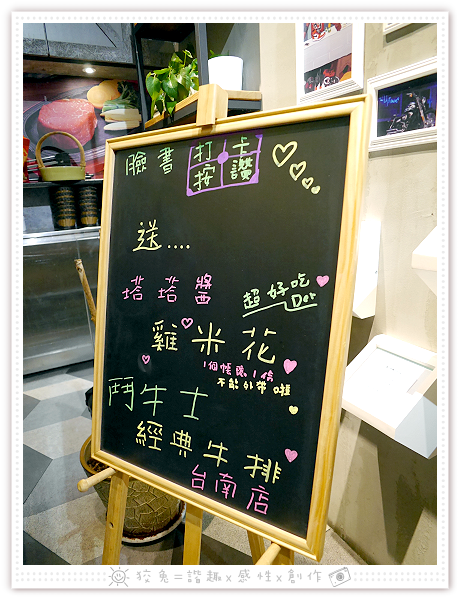 臉書 打卡
按讚
送....
塔塔醬
超好吃
Der
雞米花
1個帳號1份
不能外帶啦
鬥牛士
經典牛排
台南店
狡兔=諧趣x感性x創作